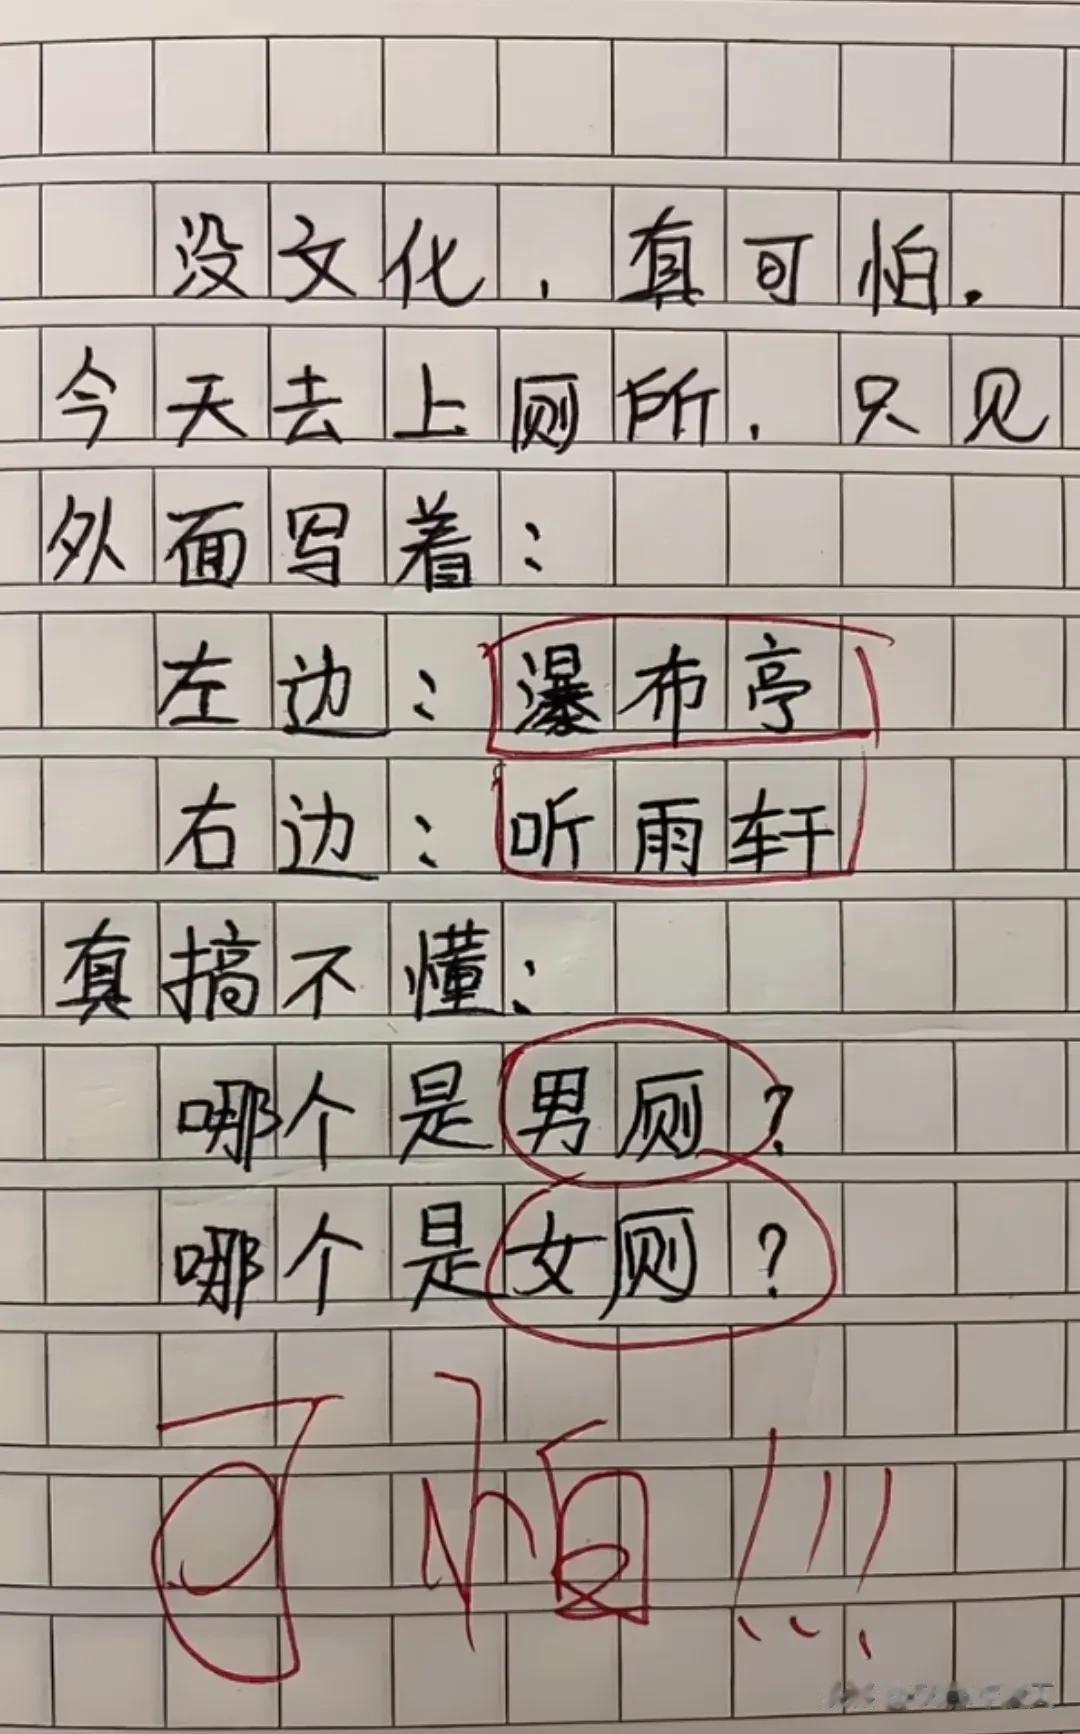 没文化，真可怕.
今天去上厕所，只见
外面写着：
左边：瀑布亭
右边：听雨轩
真搞不懂：
哪个是男厕？
哪个是女厕？
可怕!!!